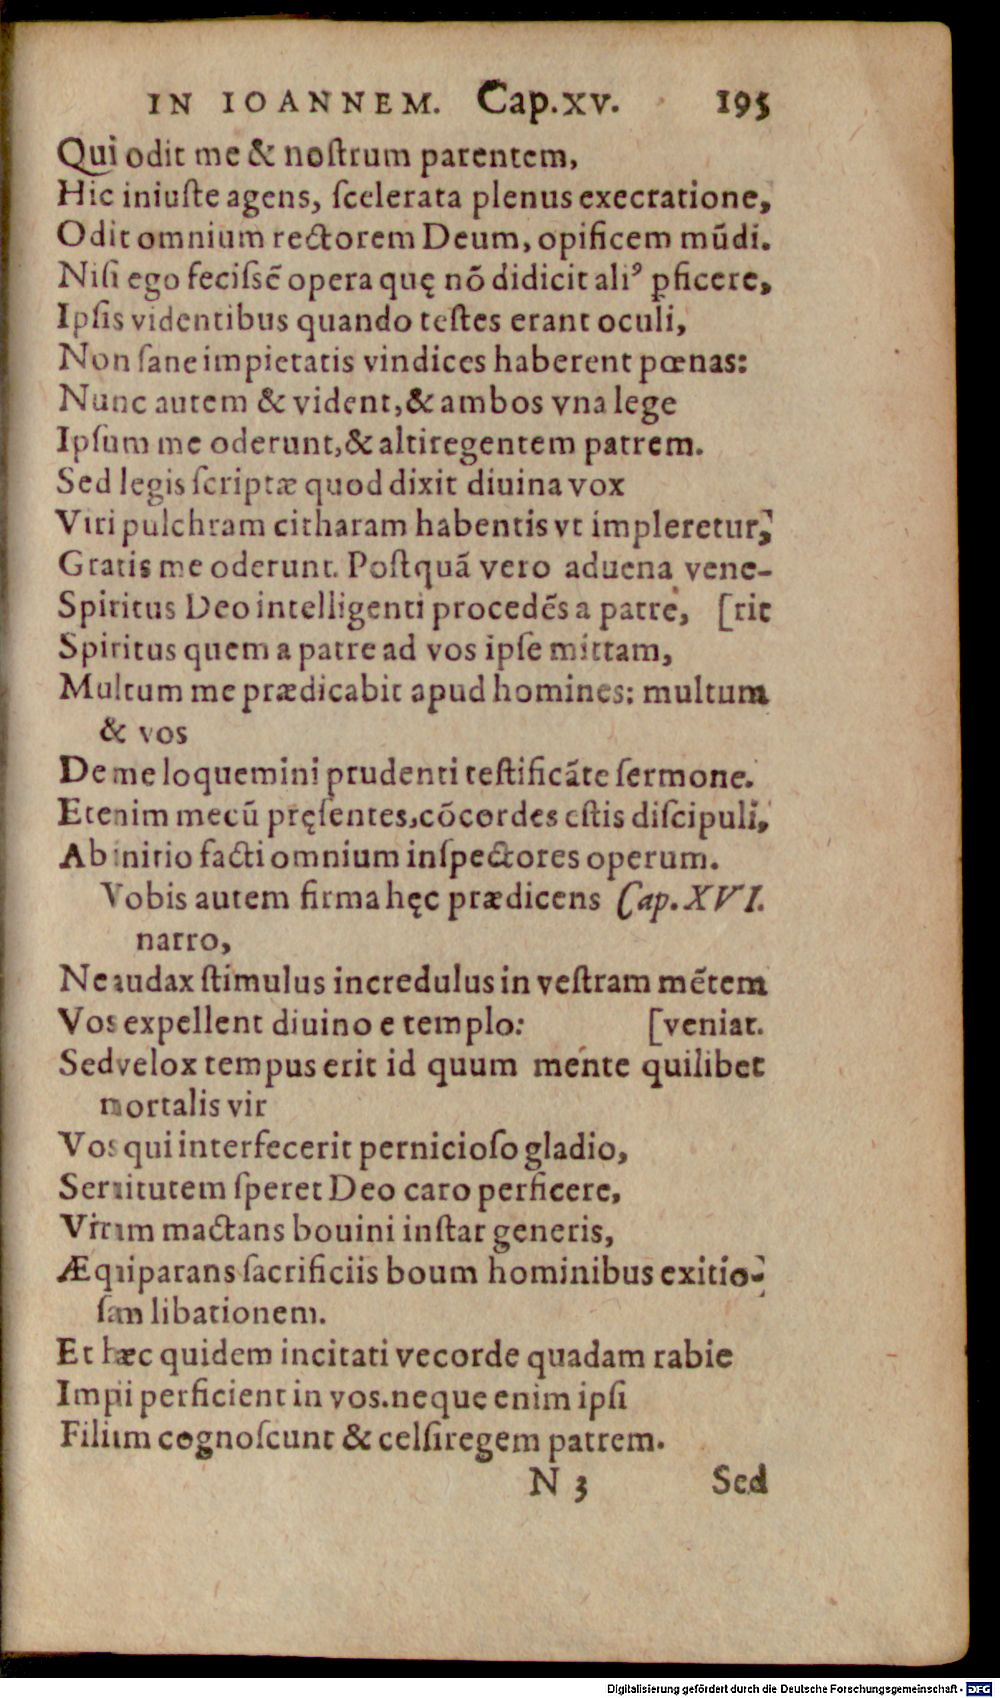 IN IOANNEM. Cap.XV. 195
Qui odit me & noſtrum parentem,
Hic iniuſte agens, ſcelerata plenus execratione,
Odit omnium rectorem Deum, opificem mũdi.
Niſi ego feciſsẽ opera quę nõ didicit aliꝰ ꝑficere,
Ipſis videntibus quando teſtes erant oculi,
Non ſane impietatis vindices haberent pœnas:
Nunc autem & vident, & ambos vna lege
Ipſum me oderunt, & altiregentem patrem.
Sed legis ſcriptæ quod dixit diuina vox
Viri pulchram citharam habentis vt impleretur,
Gratis me oderunt. Poſtquã vero aduena vene-
Spiritus Deo intelligenti procedẽs a patre, [rit
Spiritus quem a patre ad vos ipſe mittam,
Multum me prædicabit apud homines: multum
& vos
De me loquemini prudenti teſtificãte ſermone.
Etenim mecũ pręſentes, cõcordes eſtis diſcipuli,
Ab initio facti omnium inſpectores operum.
Vobis autem firma hęc prædicens Cap.XVI.
narro,
Ne audax ſtimulus incredulus in veſtram mẽtem
Vos expellent diuino e templo: [veniat.
Sed velox tempus erit id quum mente quilibet
mortalis vir
Vos qui interfecerit pernicioſo gladio,
Seruitutem ſperet Deo caro perficere,
Virum mactans bouini inſtar generis,
Æquiparans ſacrificiis boum hominibus exitio-
ſam libationem.
Et hæc quidem incitati vecorde quadam rabie
Impii perficient in vos. neque enim ipſi
Filium cognoſcunt & celſiregem patrem.
N 3 Sed
Digitalisierung gefördert durch die Deutsche Forschungsgemeinschaft - DFG